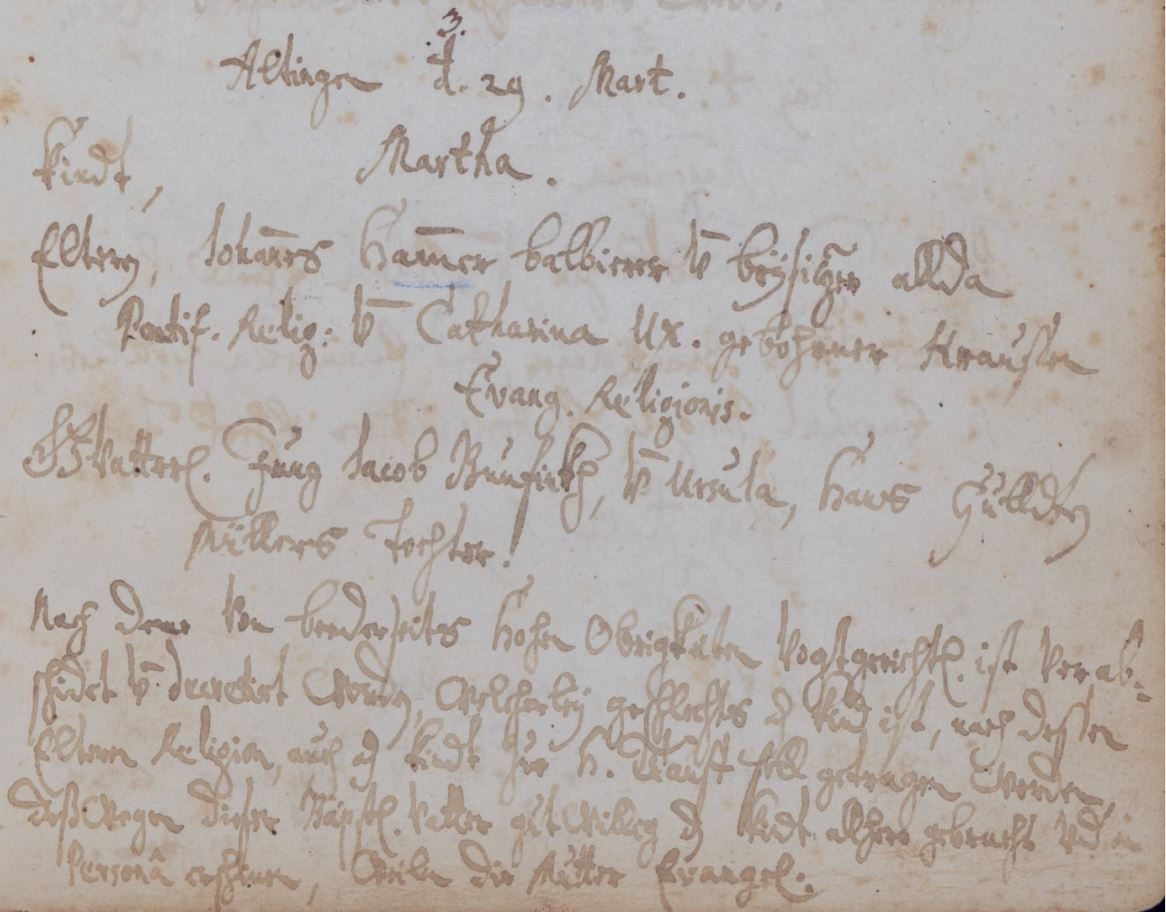 3.
Altingen d. 29. Mart.
Kindt, Martha.
Eltern, Johañes Ham̃er balbierer v̄ beÿsitzer allda
Pontif. Relig: v̄ Catharina Ux. gebohrner Kraussen
Evang. Religionis.
Gevatterl. Jung Jacob, v̄ Ursula, Hans
Müllers Tochter.
Nach deme von beederseits Hohen Obrigkeiten Vogtgerichtl. ist verab-
schidet v̄ decretirt worden, welcherleÿ geschlechts dz Kind ist, nach dessen
Eltern Religion, auch dz Kindt zur H. Tauff soll getragen werden,
deßwegen dieser Bäpstl. Vatter gutwillig dz Kindt allhero gebracht und in
Persona erschinen, weiln die Mutter Evangel:.